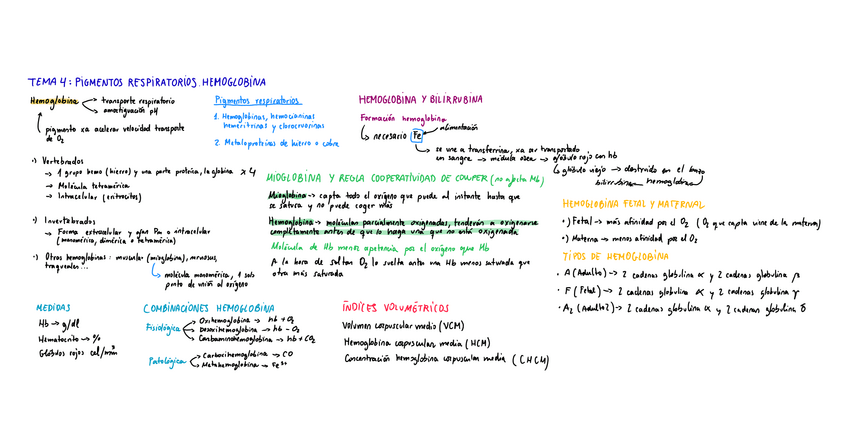 TEMA 4: PIGMENTOS RESPIRATORIOS. HEMOGLOBINA
Hemoglobina → transporte respiratorio
→ amortiguación pH
pigmento xa acelerar velocidad transporte
de O2
·) Vertebrados
→ 1 grupo hemo (hierro) y una parte proteica, la globina x4
→ Molécula tetramérica
→ Intracelular (eritrocitos)
·) Invertebrados
→ Forma extracelular y gran Pm o intracelular
(monomérica, dimérica o tetramérica)
·) Otras hemoglobinas: muscular (mioglobina), nerviosas,
traqueales...
molécula monomérica, 1 solo
punto de unión al oxígeno
Pigmentos respiratorios
1. Hemoglobinas, hemocianinas
hemeritrinas y clorocruorinas
2. Metaloproteinas de hierro o cobre
HEMOGLOBINA Y BILIRRUBINA
Formación hemoglobina
→ necesario Fe ← alimentación
→ se une a transferrina, xa ser transportado
en sangre → médula ósea → glóbulo rojo con hb
→ glóbulo viejo → destruido en el bazo
bilirrubina hemoglobina
MIOGLOBINA Y REGLA COOPERATIVIDAD DE COUPER (no afecta Mb)
Mioglobina → capta todo el oxígeno que puede al instante hasta que
se satura y no puede coger más
Hemoglobina → moléculas parcialmente oxigenadas, tenderán a oxigenarse
completamente antes de que lo haga una que no está oxigenada
Molécula de Hb menos apetencia por el oxígeno que Mb
A la hora de soltar O2 lo suelta antes una Hb menos saturada que
otra más saturada
HEMOGLOBINA FETAL Y MATERNAL
·) Fetal → más afinidad por el O2 (O2 que capta viene de la materna)
·) Materna → menos afinidad por el O2
TIPOS DE HEMOGLOBINA
· A (Adulto) → 2 cadenas globulina α y 2 cadenas globulina β
· F (Fetal) → 2 cadenas globulina α y 2 cadenas globulina γ
· A2 (Adulto2) → 2 cadenas globulina α y 2 cadenas globulina δ
MEDIDAS
Hb → g/dl
Hematocrito → %
Glóbulos rojos cel/mm³
COMBINACIONES HEMOGLOBINA
Fisiológica → Oxihemoglobina → hb + O2
→ Desoxihemoglobina → hb - O2
→ Carbaminohemoglobina → hb + CO2
Patológica → Carboxihemoglobina → CO
→ Metahemoglobina → Fe³⁺
ÍNDICES VOLUMÉTRICOS
Volumen corpuscular medio (VCM)
Hemoglobina corpuscular media (HCM)
Concentración hemoglobina corpuscular media (CHCM)